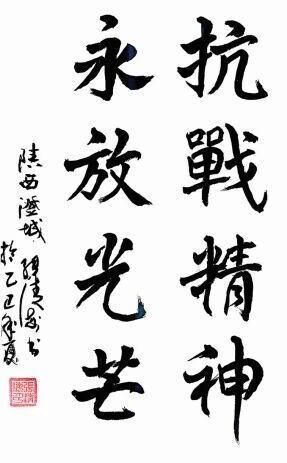 抗戰精神
永放光芒
陕西澄城
於乙巳年夏